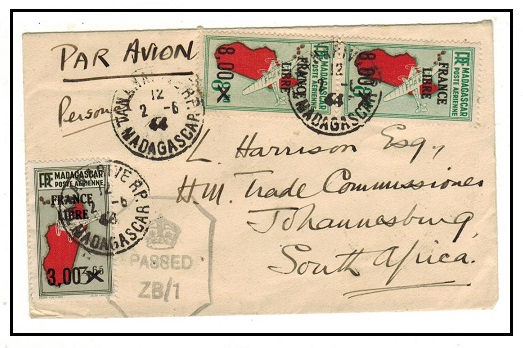 PAR AVION
Person
RF MADAGASCAR
POSTE AÉRIENNE
FRANCE
LIBRE
8,00
RF MADAGASCAR
POSTE AÉRIENNE
FRANCE
LIBRE
8,00
12
2 -6
44
MADAGASCAR
MADAGASCAR
L. Harrison Esq.,
HM. Trade Commissioner
Johannesburg,
South Africa.
RF MADAGASCAR
POSTE AÉRIENNE
FRANCE
LIBRE
3,00
3,65
MADAGASCAR
PASSED
ZB/1